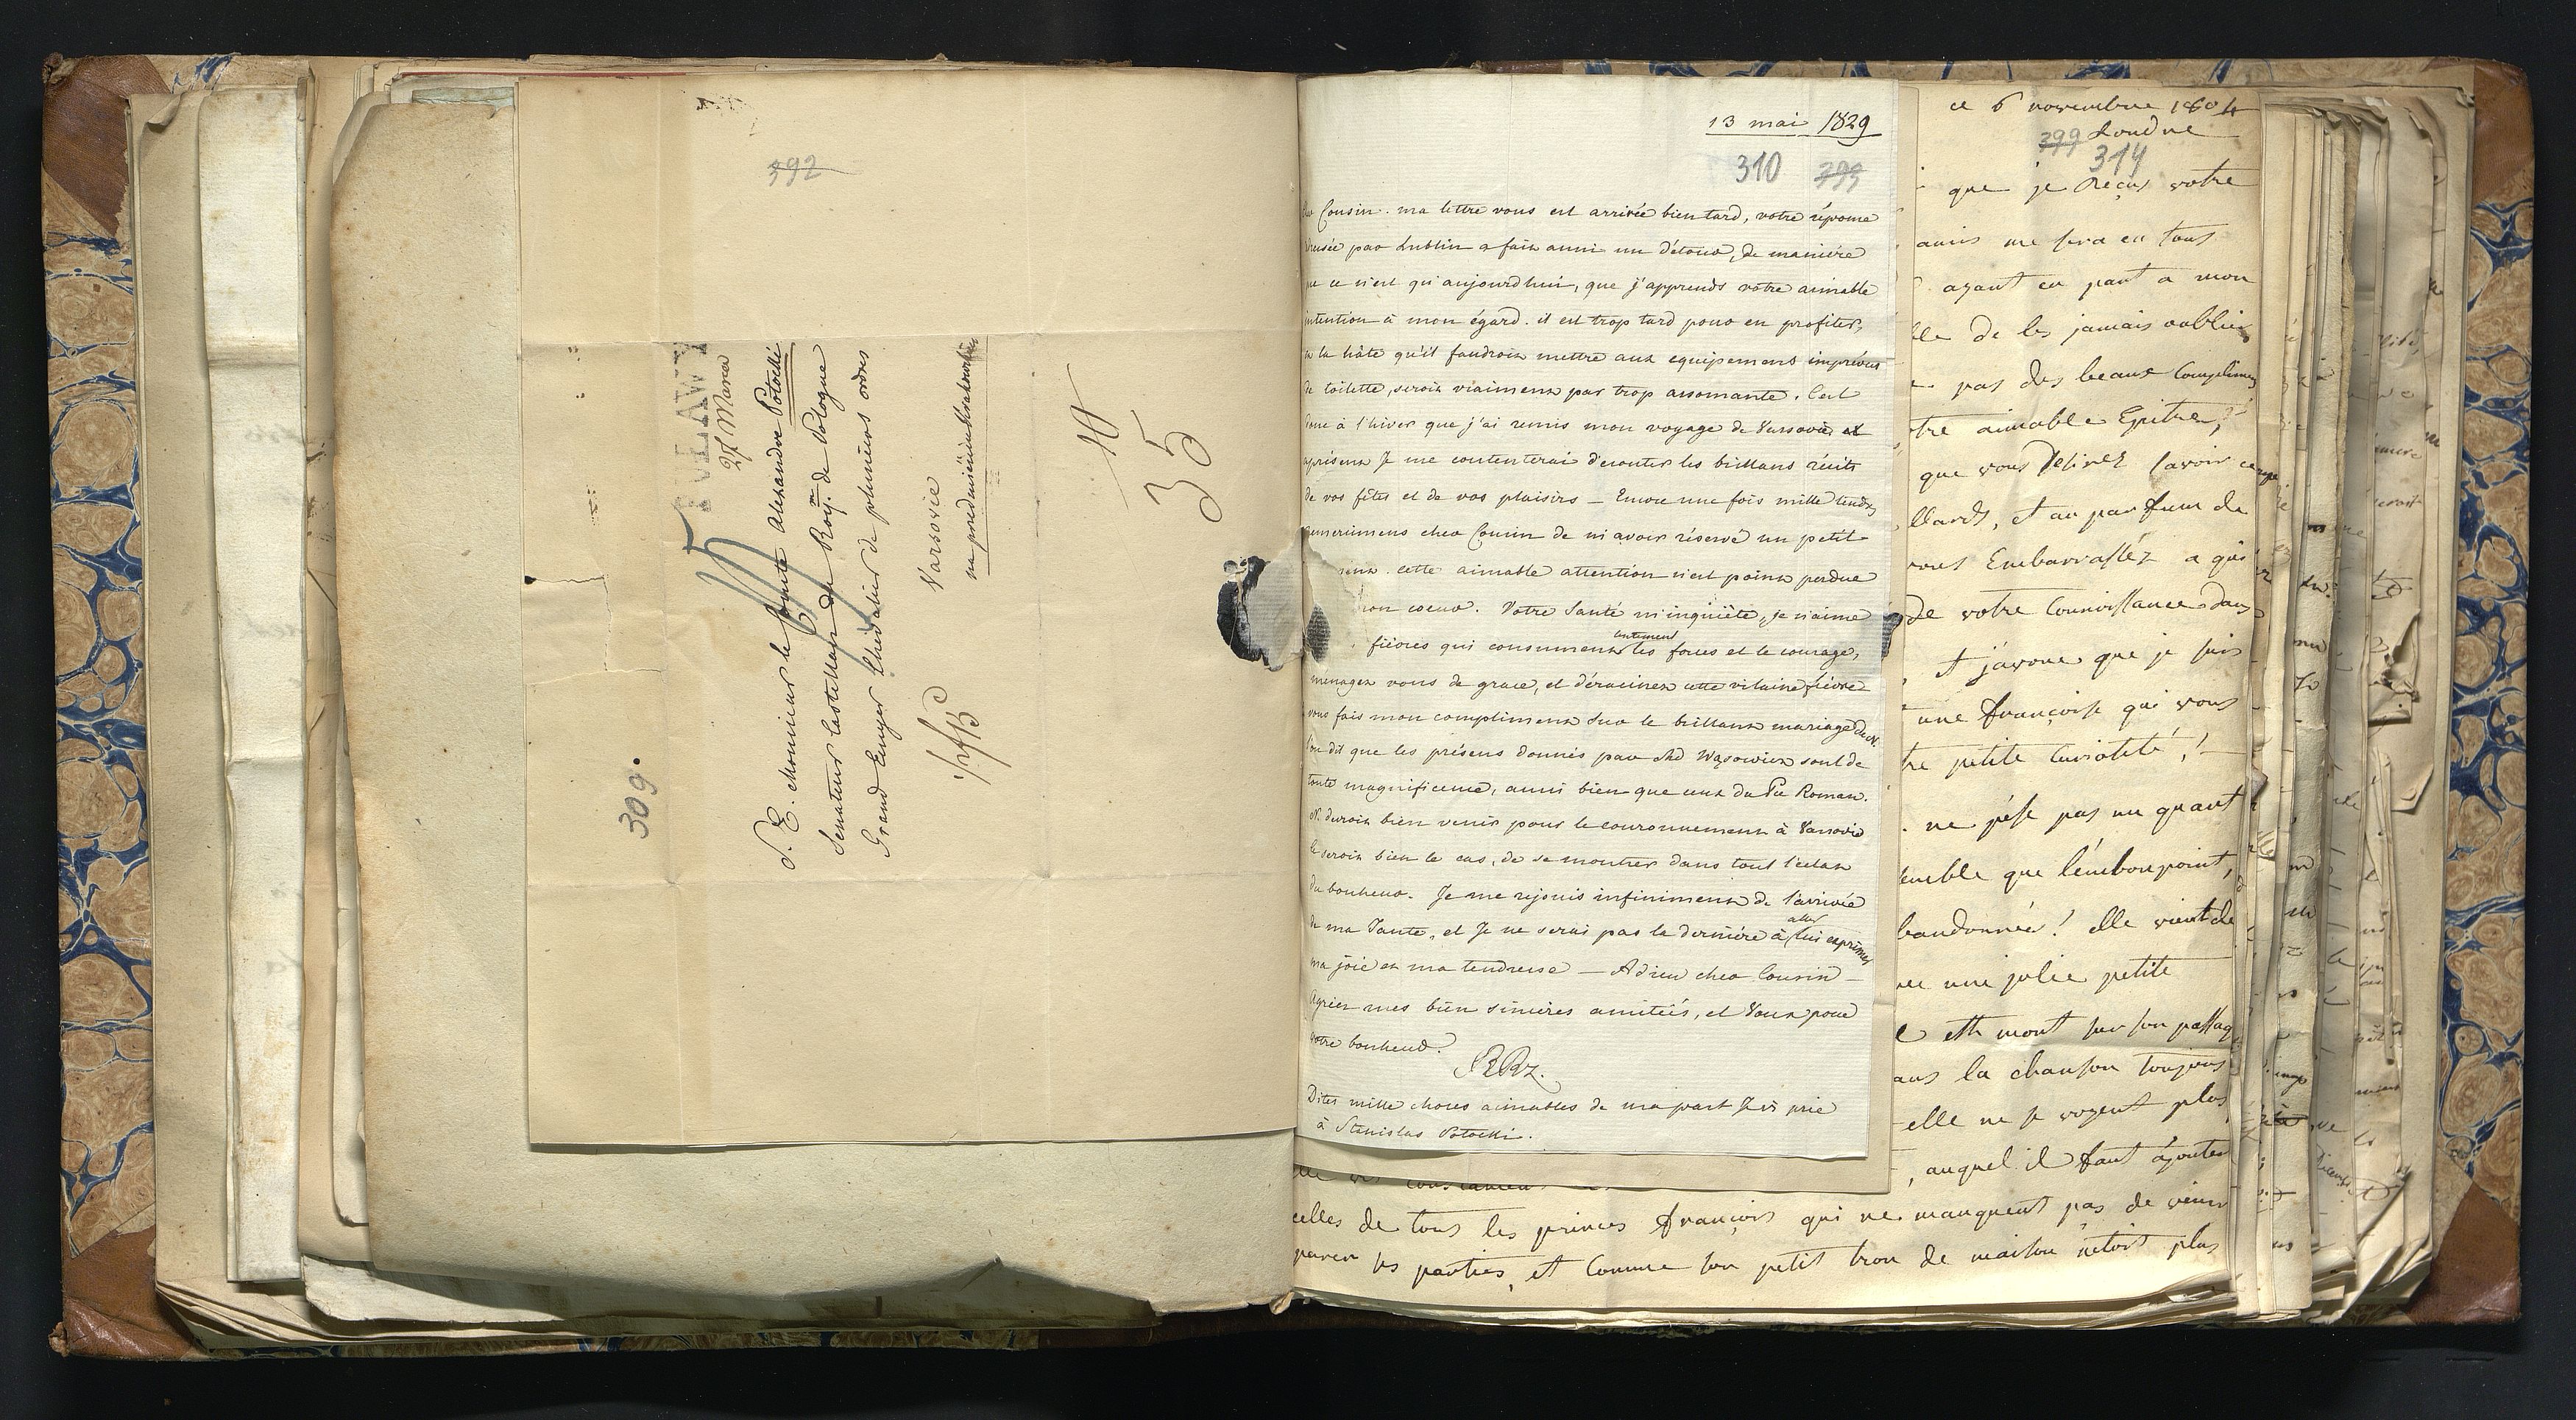 392
PULAWY
27 Marca
S. E. Monsieur le Comte Alexandre Potocki
Senateur Castellan du Roy.me de Pologne
Grand Ecuyer Chevalier de plusieurs ordres
Varsovie
na przedmieściu Krakowskim
309.
10
35
13 mai 1829
310 393
Cousin. ma lettre vous est arrivée bien tard, votre réponse
par Lublin a fait aussi un détour, de manière
que ce n'est qu'aujourdhui, que j'apprends votre aimable
intention à mon égard. il est trop tard pour en profiter,
la hâte qu'il faudroit mettre aux equipemens imprévus
de toilette, seroit vraiment par trop assomante. C'est
donc à l'hiver que j'ai remis mon voyage de Varsovie et
aprésent Je me contenterai d'ecouter les brillans récits
de vos fêtes et de vos plaisirs — Encore une fois mille tendres
remerciemens cher Cousin de m'avoir réservé un petit
cette aimable attention n'est point perdue
mon coeur. Votre Santé m'inquiète, Je n'aime
fièvres qui consument lentement les forces et le courage,
menagez vous de grace, et déracinez cette vilaine fièvre
vous fais mon compliment sur le brillant mariage de N.
l'on dit que les présens donnés par Md Wąsowicz sont de
toute magnificence, aussi bien que ceux du Pce Roman.
N. devroit bien venir pour le couronnement à Varsovie
le seroit bien le cas, de se montrer dans tout l'éclat
du bonheur. Je me rejouis infiniment de l'arrivée
de ma Tante, et Je ne serai pas la dernière à aller lui exprimer
ma joie et ma tendresse — Adieu cher Cousin —
Agréez mes bien sincères amitiés, et Vœux pour
votre bonheur.
Dites mille choses aimables de ma part Je v: prie
à Stanislas Potocki.
ce 6 novembre 1804
Londre
399 314
que je reçus votre
amis me sera en tous
ayant eu part a mon
de les jamais oublier
pas des beaux Complimens
aimable Epitre,
que vous desirez savoir
et au parfum de
vous Embarrassez a qui
de votre Connoissance dans
et j'avoue que je suis
une françoise qui vous
petite Curiosité!
ne pése pas un quart
que l'embonpoint,
elle vient de
une jolie petite
est mont sur son passag
la chanson toujours
elle ne se voyent plus
auquel il faut ajouter
celles de tous les princes françois qui ne manquent pas de venir
parer ses parties, et Comme son petit trou de maison n'etoit plus